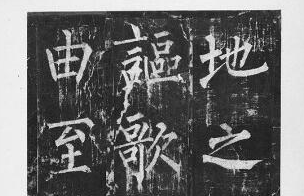 地之
謳歌
由至